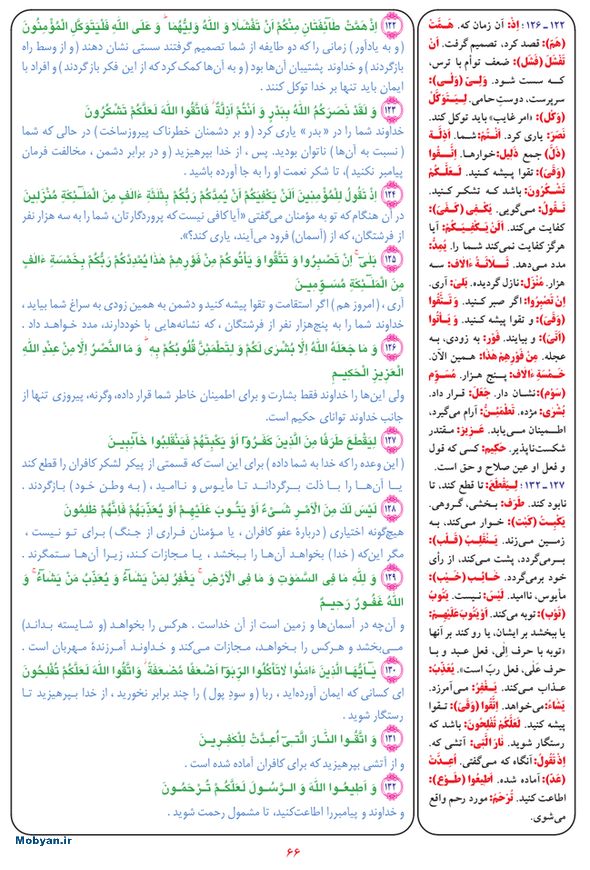 ۱۲۲ اِذْ هَمَّتْ طَآئِفَتَانِ مِنْكُمْ اَنْ تَفْشَلَا وَ اللهُ وَلِيُّهُمَا ۗ وَ عَلَى اللهِ فَلْيَتَوَكَّلِ الْمُؤْمِنُونَ
( و به یادآور) زمانی را که دو طایفه از شما تصمیم گرفتند سستی نشان دهند ( و از وسط راه
بازگردند ) و خداوند پشتیبان آن‌ها بود ( و به آن‌ها کمک کرد که از این فکر بازگردند ) و افراد با
ایمان باید تنها بر خدا توکل کنند .
۱۲۳ وَ لَقَدْ نَصَرَكُمُ اللهُ بِبَدْرٍ وَ اَنْتُمْ اَذِلَّةٌ ۖ فَاتَّقُوا اللهَ لَعَلَّكُمْ تَشْكُرُونَ
خداوند شما را در «بدر» یاری کرد ( و بر دشمنان خطرناک پیروزساخت ) در حالی که شما
( نسبت به آن‌ها ) ناتوان بودید. پس ، از خدا بپرهیزید ( و در برابر دشمن ، مخالفت فرمان
پیامبر نکنید )، تا شکر نعمت او را به جا آورده باشید .
۱۲۴ اِذْ تَقُولُ لِلْمُؤْمِنِينَ اَلَنْ يَكْفِيَكُمْ اَنْ يُمِدَّكُمْ رَبُّكُمْ بِثَلٰثَةِ ءَالٰفٍ مِنَ الْمَلٰٓئِكَةِ مُنْزَلِينَ
در آن هنگام که تو به مؤمنان می‌گفتی «آیا کافی نیست که پروردگارتان، شما را به سه هزار نفر
از فرشتگان، که از (آسمان) فرود می‌آیند، یاری کند؟».
۱۲۵ بَلٰىٓ ۚ اِنْ تَصْبِرُوا وَ تَتَّقُوا وَ يَأْتُوكُمْ مِنْ فَوْرِهِمْ هٰذَا يُمْدِدْكُمْ رَبُّكُمْ بِخَمْسَةِ ءَالٰفٍ
مِنَ الْمَلٰٓئِكَةِ مُسَوِّمِينَ
آری ، (امروز هم ) اگر استقامت و تقوا پیشه کنید و دشمن به همین زودی به سراغ شما بیاید ،
خداوند شما را به پنج‌هزار نفر از فرشتگان ، که نشانه‌هایی با خوددارند، مدد خواهـد داد .
۱۲۶ وَ مَا جَعَلَهُ اللهُ اِلَّا بُشْرٰى لَكُمْ وَ لِتَطْمَئِنَّ قُلُوبُكُمْ بِهِ ۗ وَ مَا النَّصْرُ اِلَّا مِنْ عِنْدِ اللهِ
الْعَزِيزِ الْحَكِيمِ
ولی این‌ها را خداوند فقط بشارت و برای اطمینان خاطر شما قرار داده، وگرنه، پیروزی تنها از
جانب خداوند توانای حکیم است.
۱۲۷ لِيَقْطَعَ طَرَفًا مِنَ الَّذِينَ كَفَرُوٓا اَوْ يَكْبِتَهُمْ فَيَنْقَلِبُوا خَآئِبِينَ
( این وعده را که خدا به شما داده ) برای این است که قسمتی از پیکر لشکر کافران را قطع کند
یا آن‌ها را با ذلت برگرداند تا مأیوس و ناامید ، ( به وطن خود ) بازگردند .
۱۲۸ لَيْسَ لَكَ مِنَ الْاَمْرِ شَيْءٌ اَوْ يَتُوبَ عَلَيْهِمْ اَوْ يُعَذِّبَهُمْ فَاِنَّهُمْ ظٰلِمُونَ
هیچ‌گونه اختیاری (دربارهٔ عفو کافران ، یا مؤمنان فراری از جنگ ) برای تو نیست ،
مگر این‌که ( خدا ) بخواهد آن‌ها را ببخشد ، یا مجازات کند، زیرا آن‌ها ستمگرند .
۱۲۹ وَ لِلّٰهِ مَا فِى السَّمٰوٰتِ وَ مَا فِى الْاَرْضِ ۚ يَغْفِرُ لِمَنْ يَشَآءُ وَ يُعَذِّبُ مَنْ يَشَآءُ ۚ وَ
اللهُ غَفُورٌ رَحِيمٌ
و آن‌چه در آسمان‌ها و زمین است از آن خداست . هرکس را بخواهد (و شایسته بداند)
می‌بخشد و هرکس را بخواهـد، مجازات می‌کند و خداوند آمرزندهٔ مهـربان است .
۱۳۰ يٰٓاَيُّهَا الَّذِينَ ءَامَنُوا لَاتَأْكُلُوا الرِّبٰوٓا اَضْعٰفًا مُضٰعَفَةً ۖ وَ اتَّقُوا اللهَ لَعَلَّكُمْ تُفْلِحُونَ
ای کسانی که ایمان آورده‌اید ، ربا ( و سودِ پول ) را چند برابر نخورید ، از خدا بپرهیزید تا
رستگار شوید .
۱۳۱ وَ اتَّقُوا النَّارَ الَّتِىٓ اُعِدَّتْ لِلْكٰفِرِينَ
و از آتشی بپرهیزید که برای کافران آماده شده است .
۱۳۲ وَ اَطِيعُوا اللهَ وَ الرَّسُولَ لَعَلَّكُمْ تُرْحَمُونَ
و خداوند و پیامبررا اطاعت‌کنید، تا مشمول رحمت شوید .
۱۲۲ ـ ۱۲۶ : اِذْ: آن زمان که. هَمَّتْ
(هَمّ): قصد کرد، تصمیم گرفت. اَنْ
تَفْشَلَ (فَشَل): ضعف توأم با ترس،
که سست شود. وَلِیّ (وَلْی):
سرپرست، دوستِ حامی. لِیَتَوَکَّلْ
(وَکْل): «امر غایب» باید توکل کند.
نَصَرَ: یاری کرد. اَنْتُمْ: شما. اَذِلَّة
(ذُلّ) جمع ذَلیل: خوارها. اِتَّقُوا
(وَقْی): تقوا پیشه کنید. لَعَلَّکُمْ
تَشْکُرُونَ: باشد که تشکر کنید.
تَقُولُ: می‌گویی. یَکْفی (کَفْی):
کفایت می‌کند. اَلَنْ یَکْفِیَکُمْ: آیا
هرگز کفایت نمی‌کند شما را. یُمِدُّ:
مدد می‌دهد. ثَلاثَةُ ءَالاف: سه
هزار. مُنْزَل: نازل گردیده. بَلی: آری.
اِنْ تَصْبِرُوا: اگر صبر کنید. وَ تَتَّقُوا
(وَقْی): و تقوا پیشه کنید. وَ یَأْتُوا
(اَتْی): و بیایند. فَوْر: به زودی، به
عجله. مِنْ فَوْرِهِمْ هٰذا: همین الآن.
خَمْسَةِ ءَالاف: پنج هزار. مُسَوِّم
(سَوْم): نشان دار. جَعَلَ: قرار داد.
بُشْری: مژده. تَطْمَئِنُّ: آرام می‌گیرد،
اطمینان می‌یابد. عَزیز: مقتدر
شکست‌ناپذیر. حَکیم: کسی که قول
و فعل او عین صلاح و حق است.
۱۲۷ ـ ۱۳۲ : لِیَقْطَعَ: تا قطع کند، تا
نابود کند. طَرَف: بخشی، گروهی.
یَکْبِتُ (کَبْت): خوار می‌کند، به
زمین می‌زند. یَنْقَلِبُ (قَلْب):
برمی‌گردد، پشت می‌کند، از رأی
خود برمی‌گردد. خائِب (خَیْب):
مأیوس، ناامید. لَیْسَ: نیست. یَتُوبُ
(تَوْب): توبه می‌کند. اَوْ یَتُوبَ عَلَیْهِمْ:
یا ببخشد بر ایشان، یا رو کند بر آنها
«توبه با حرف اِلی، فعل عبد و با
حرف عَلی، فعل ربّ است». یُعَذِّبُ:
عذاب می‌کند. یَغْفِرُ: می‌آمرزد.
یَشاءُ: می‌خواهد. اِتَّقُوا (وَقْی): تـقوا
پیشه کنید. لَعَلَّکُمْ تُفْلِحُونَ: باشد که
رستگار شوید. نارَ الَّتی: آتشی که.
اِذْ تَقُولُ: آنگاه که می‌گفتی. اُعِدَّتْ
(عَدّ): آماده شده. اَطیعُوا (طَوْع):
اطاعت کنید. تُرْحَمُ: مورد رحم واقع
می‌شوی.
۶۶
Mobyan.ir